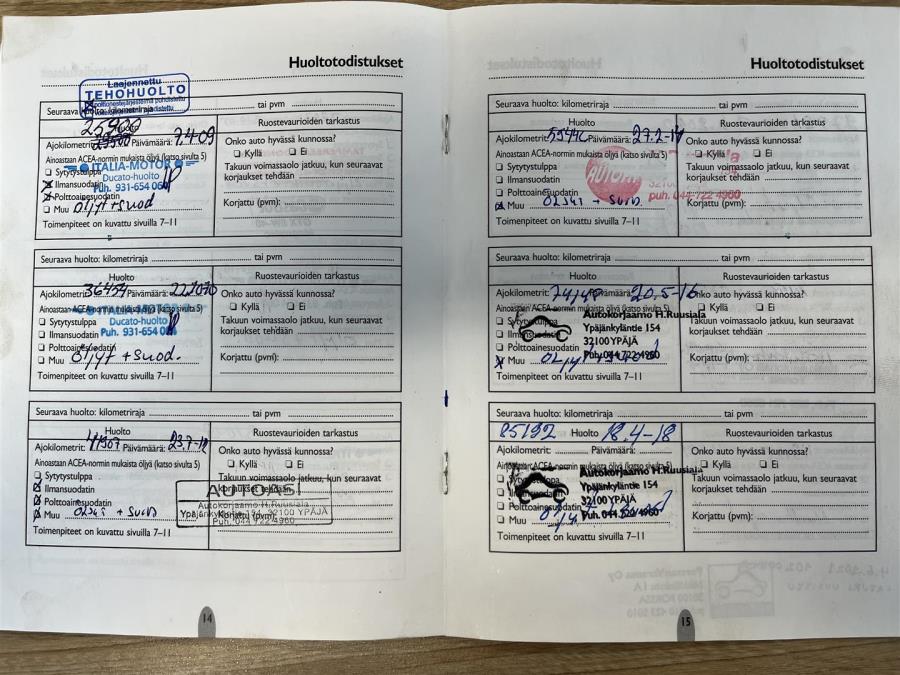 Huoltotodistukset
Laajennettu
TEHOHUOLTO
Seuraava huolto: kilometriraja tai pvm
25900 Huolto Ruostevaurioiden tarkastus
Ajokilometrit: Päivämäärä: 7.4-09 Onko auto hyvässä kunnossa?
Ainoastaan ACEA-normin mukaista öljyä (katso sivulta 5) Kyllä Ei
ITALIA-MOTOR
Sytytystulppa Ducato-huolto Takuun voimassaolo jatkuu, kun seuraavat
Ilmansuodatin Puh. 931-654 korjaukset tehdään
Polttoainesuodatin
Muu + suod Korjattu (pvm):
Toimenpiteet on kuvattu sivuilla 7–11
Seuraava huolto: kilometriraja tai pvm
Huolto Ruostevaurioiden tarkastus
Ajokilometrit: 36454 Päivämäärä: Onko auto hyvässä kunnossa?
Ainoastaan ACEA-normin mukaista öljyä (katso sivulta 5) Kyllä Ei
ITALIA-MOTOR
Sytytystulppa Ducato-huolto Takuun voimassaolo jatkuu, kun seuraavat
Ilmansuodatin Puh. 931-654 korjaukset tehdään
Polttoainesuodatin
Muu + suod. Korjattu (pvm):
Toimenpiteet on kuvattu sivuilla 7–11
Seuraava huolto: kilometriraja tai pvm
Huolto Ruostevaurioiden tarkastus
Ajokilometrit: 41907 Päivämäärä: Onko auto hyvässä kunnossa?
Ainoastaan ACEA-normin mukaista öljyä (katso sivulta 5) Kyllä Ei
Sytytystulppa Takuun voimassaolo jatkuu, kun seuraavat
Ilmansuodatin korjaukset tehdään
AUTOASI
Polttoainesuodatin Autokorjaamo H.Ruusiala
Muu Korjattu (pvm): 32100 YPÄJÄ
Puh. 044 722 4960
Toimenpiteet on kuvattu sivuilla 7–11
14
Huoltotodistukset
Seuraava huolto: kilometriraja tai pvm
Huolto Ruostevaurioiden tarkastus
Ajokilometrit: Päivämäärä: Onko auto hyvässä kunnossa?
Ainoastaan ACEA-normin mukaista öljyä (katso sivulta 5) Kyllä Ei
Sytytystulppa Takuun voimassaolo jatkuu, kun seuraavat
Ilmansuodatin korjaukset tehdään
Polttoainesuodatin puh. 044 722 4960
Muu Korjattu (pvm):
Toimenpiteet on kuvattu sivuilla 7–11
Seuraava huolto: kilometriraja tai pvm
Huolto Ruostevaurioiden tarkastus
Ajokilometrit: Päivämäärä: 20.5-16 Onko auto hyvässä kunnossa?
Ainoastaan ACEA-normin mukaista öljyä Kyllä Ei
Autokorjaamo H.Ruusiala
Sytytystulppa Ypäjänkyläntie 154 Takuun voimassaolo jatkuu, kun seuraavat
Ilmansuodatin 32100 YPÄJÄ korjaukset tehdään
Polttoainesuodatin Puh. 044 722 4960
Muu Korjattu (pvm):
Toimenpiteet on kuvattu sivuilla 7–11
Seuraava huolto: kilometriraja tai pvm
85192 Huolto 18.4-18 Ruostevaurioiden tarkastus
Ajokilometrit: Päivämäärä: Onko auto hyvässä kunnossa?
Ainoastaan ACEA-normin mukaista öljyä (katso sivulta 5) Kyllä Ei
Autokorjaamo H.Ruusiala
Ypäjänkyläntie 154 Takuun voimassaolo jatkuu, kun seuraavat
32100 YPÄJÄ korjaukset tehdään
Polttoainesuodatin Puh. 044 722 4960
Muu Korjattu (pvm):
Toimenpiteet on kuvattu sivuilla 7–11
15